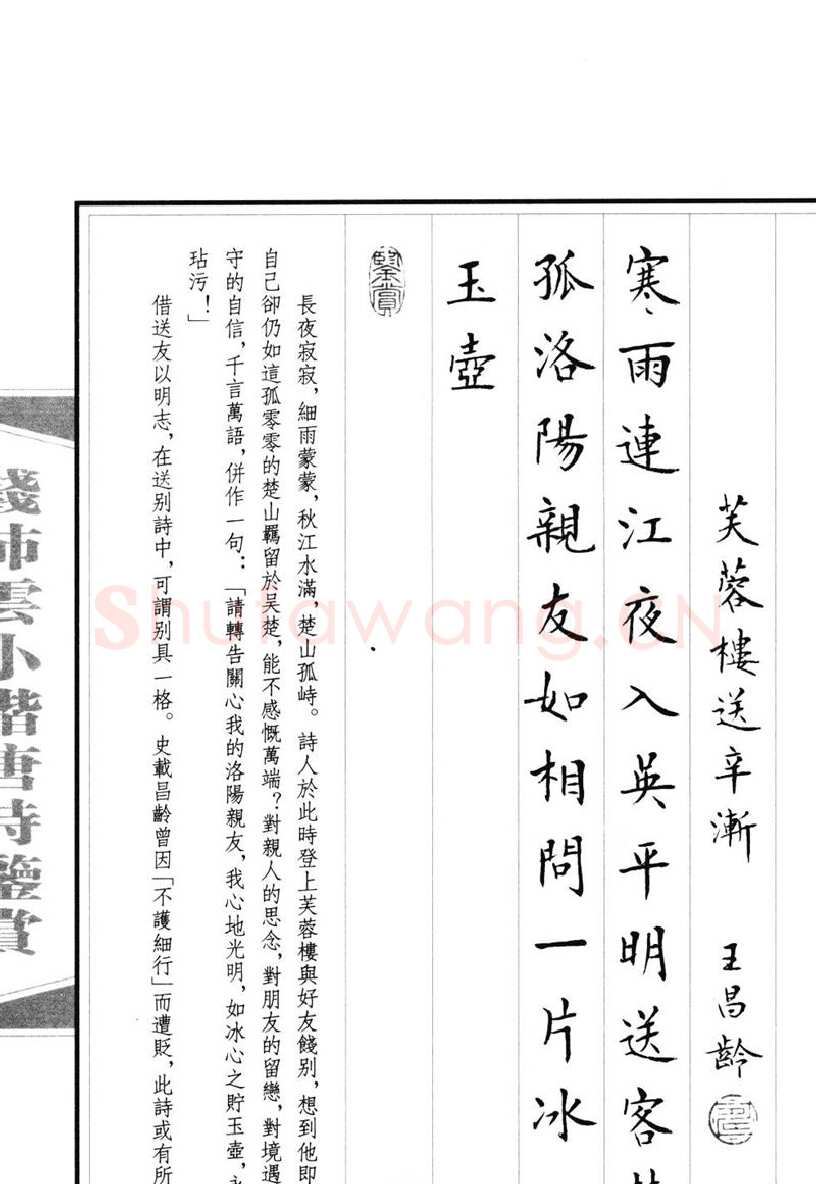 芙蓉樓送辛漸 王昌齡
寒雨連江夜入吴平明送客
孤洛陽親友如相問一片冰
玉壺
鑒賞
長夜寂寂，細雨蒙蒙，秋江水滿，楚山孤峙。詩人於此時登上芙蓉樓與好友餞别，想到他即
自己卻仍如這孤零零的楚山羈留於吴楚，能不感慨萬端？對親人的思念，對朋友的留戀，對境遇
守的自信，千言萬語，併作一句：「請轉告關心我的洛陽親友，我心地光明，如冰心之貯玉壺，永
玷污！」
借送友以明志，在送别詩中，可謂别具一格。史載昌齡曾因「不護細行」而遭貶，此詩或有所
錢沛雲小楷唐詩鑒賞
Shufawang.CN